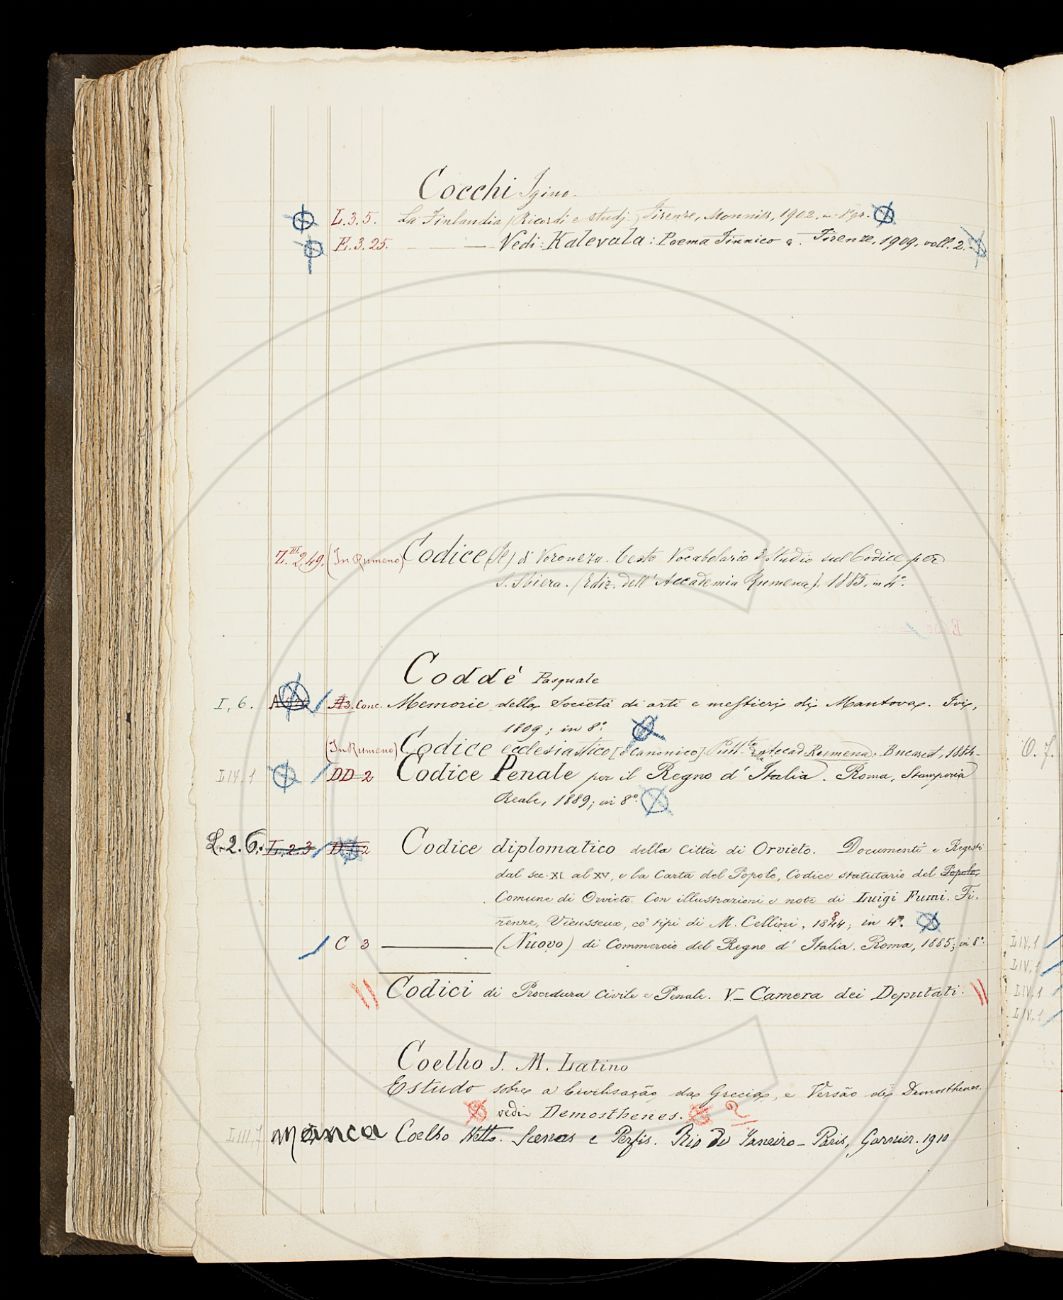 Cocchi Igino.
L.3.5. La Finlandia (Ricordi e studj) Firenze, Monnier, 1902, in 8° gr.
E.3.25. Vedi: Kalevala: Poema Finnico &. Firenze, 1909. voll. 2.
Z.III.2.49. (In Rumeno) Codice (Il) di Voronetz. Testo Vocabolario e Studio sul Codice per
S. Sbiera. (Ediz. dell'Accademia Rumena). 1885, in 4°.
Coddè Pasquale
I, 6. A3. Conc. Memorie della Società di arti e mestieri di Mantova. Ivi,
1809; in 8°.
(In Rumeno) Codice ecclesiastico (o Canonico). Accad. Rumena. Bucarest, 1884.
LIV.1 DD 2 Codice Penale per il Regno d'Italia. Roma, Stamperia
Reale, 1889; in 8°
L.2.6. L.2.3 Codice diplomatico della Città di Orvieto. Documenti e Regesti
dal sec. XI al XV, e la Carta del Popolo, Codice statutario del Popolo,
Comune di Orvieto. Con illustrazioni e note di Luigi Fumi. Fi-
renze, Vieusseux, co' tipi di M. Cellini, 1884; in 4°.
C 3 (Nuovo) di Commercio del Regno d'Italia. Roma, 1885; in 8°.
Codici di Procedura Civile e Penale. V_ Camera dei Deputati.
Coelho J. M. Latino
Estudo sobre a Civilisação da Grecia, e Versão de Demosthenes.
vedi Demosthenes. ?
manca Coelho Netto. Scenas e Perfis. Rio de Janeiro - Paris, Garnier. 1910